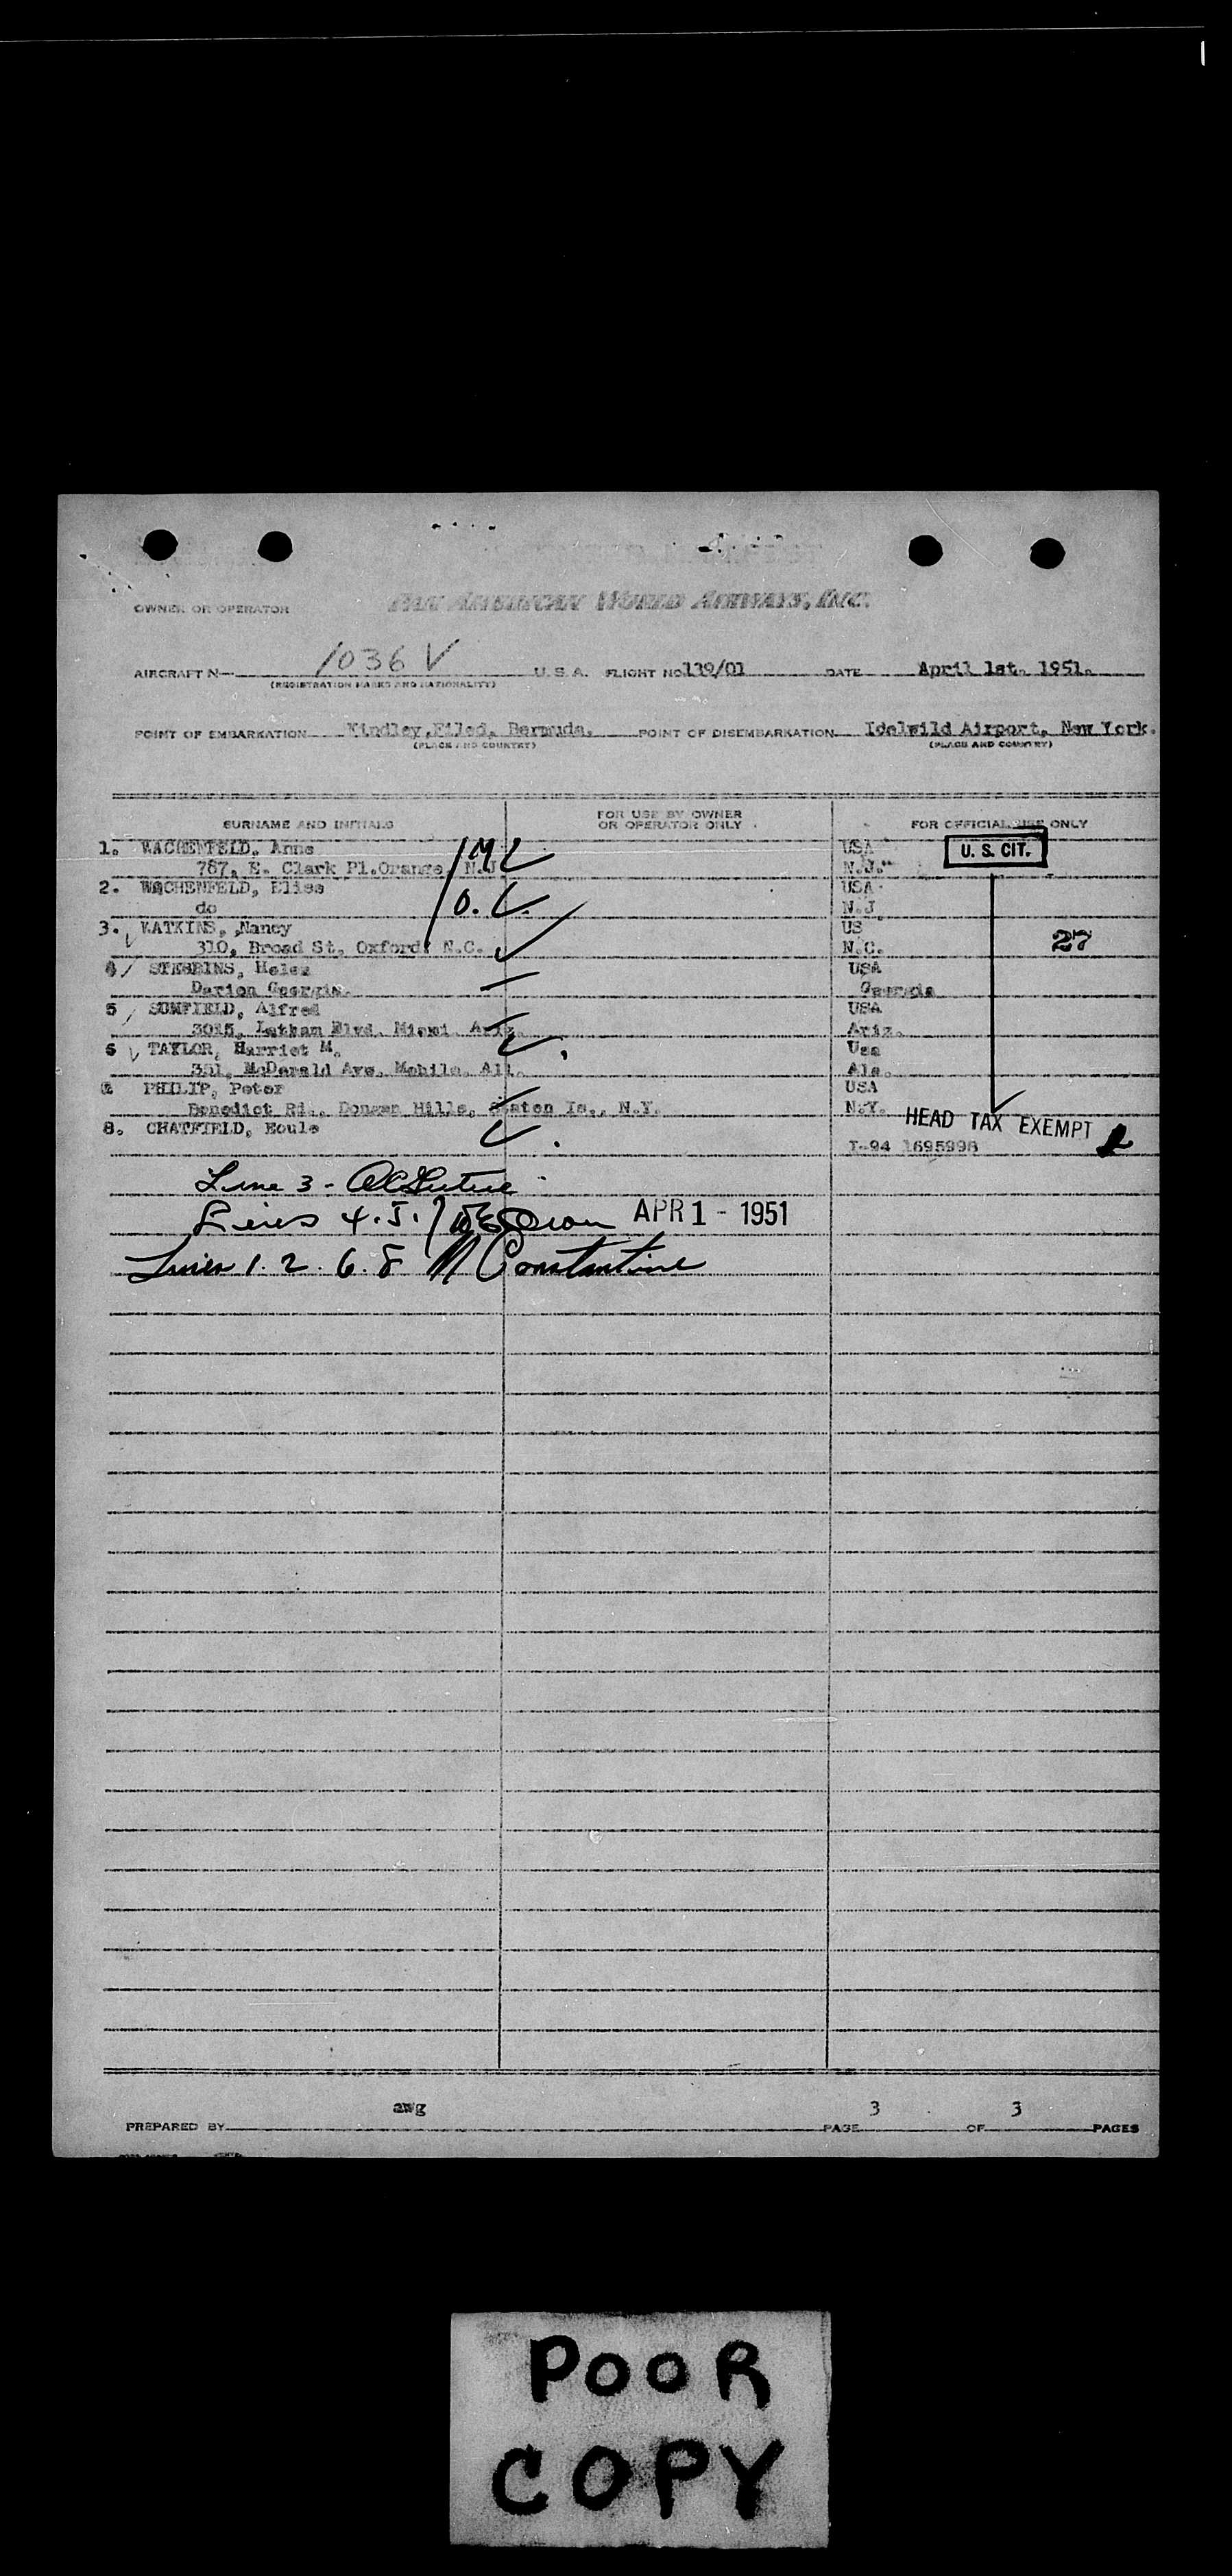 OWNER OR OPERATOR PAN AMERICAN WORLD AIRWAYS, INC.
AIRCRAFT N- 1036 V U. S. A. FLIGHT NO 139/01 DATE April 1st. 1951.
(REGISTRATION MARKS AND NATIONALITY)
POINT OF EMBARKATION Kindley,Filed, Bermuda. POINT OF DISEMBARKATION Idelwild Airport, New York.
(PLACE AND COUNTRY) (PLACE AND COUNTRY)
SURNAME AND INITIALS FOR USE BY OWNER OR OPERATOR ONLY FOR OFFICIAL USE ONLY
1. WACHENFELD, Anne USA U. S. CIT.
787, E. Clark Pl.Orange, N.J. N.J.
2. WACHENFELD, Eliss USA
do N.J.
3. WATKINS, Nancy US
310, Broad St, Oxford, N.C. N.C. 27
4 STEBBINS, Helen USA
Darion Georgia. Georgia
5 SUMFIELD, Alfred USA
3015, Latham Blvd. Miami. Ariz. Ariz.
6 TAYLOR, Harriet M. Usa
351, McDarald Ave. Mobile. Ala. Ala.
PHILIP, Peter USA
Benedict Rd., Dongan Hills, Staten Is., N.Y. N.Y. HEAD TAX EXEMPT
8. CHATFIELD, Houle
I-94 1695998
Line 3 -
Lines 4.5.7 APR 1 - 1951
Lines 1. 2. 6. 8 M Constantine
PREPARED BY awg PAGE 3 OF 3 PAGES
POOR
COPY